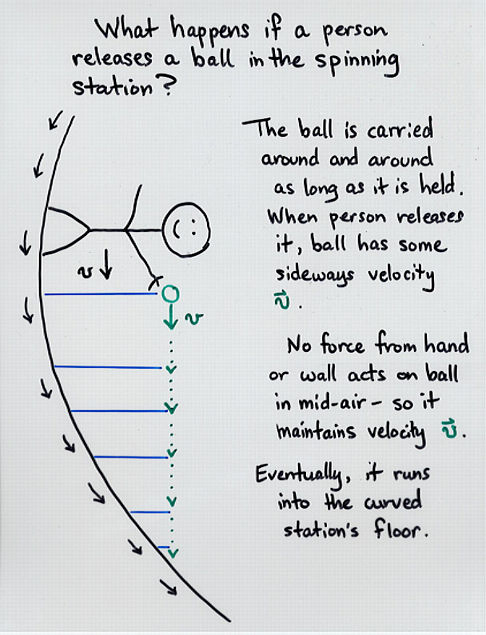 What happens if a person
releases a ball in the spinning
station?
The ball is carried
around and around
as long as it is held.
When person releases
it, ball has some
sideways velocity
v⃗.
v
v
No force from hand
or wall acts on ball
in mid-air - so it
maintains velocity v⃗.
Eventually, it runs
into the curved
station's floor.